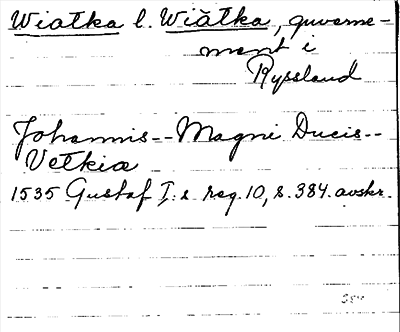 Wiatka l. Wiätka, guverne-
ment i
Ryssland
Johannis -- Magni Ducis --
Vetkia
1535 Gustaf I:s reg. 10, s. 384. avskr.
384